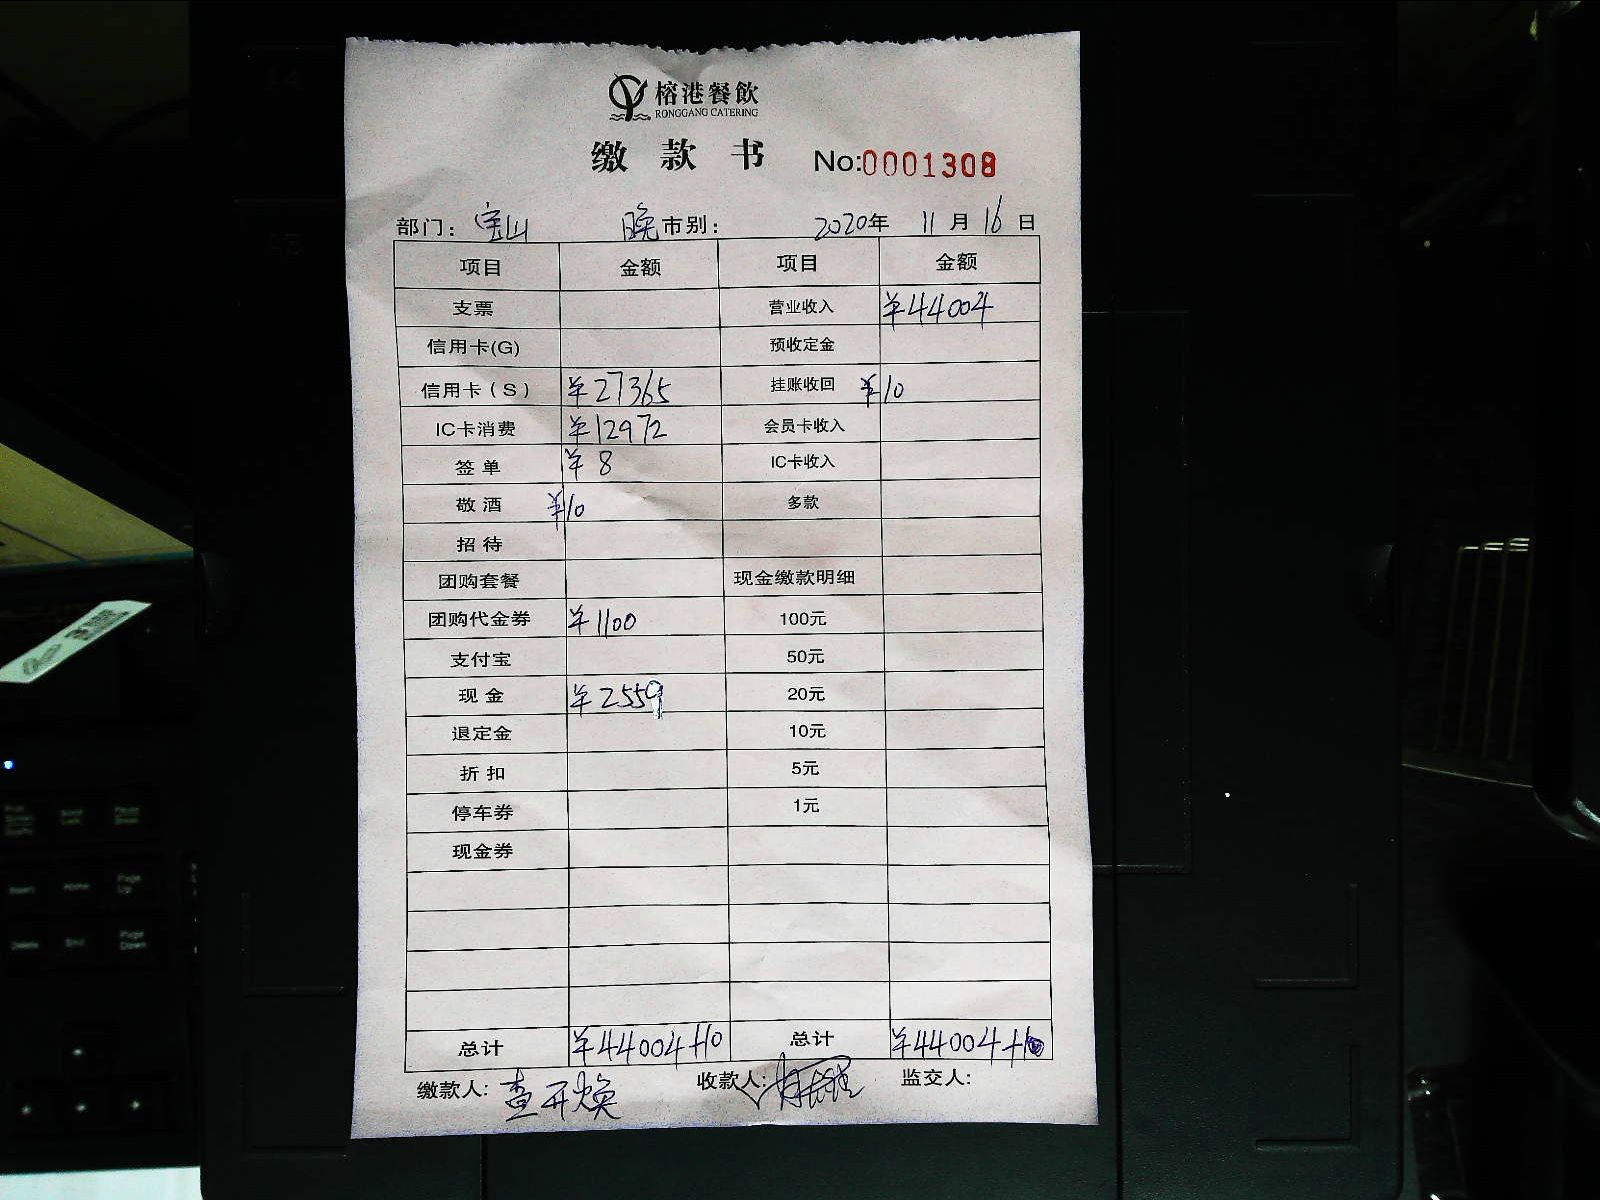 榕港餐飲
RONGGANG CATERING
缴款书 No:0001308
部门：宝山 晚市别： 2020年 11月16日
项目 金额 项目 金额
支票 营业收入 ¥44004
信用卡(G) 预收定金
信用卡（S） ¥27365 挂账收回 ¥10
IC卡消费 ¥12972 会员卡收入
签单 ¥8 IC卡收入
敬酒 ¥10 多款
招待
团购套餐 现金缴款明细
团购代金券 ¥1100 100元
支付宝 50元
现金 ¥2559 20元
退定金 10元
折扣 5元
停车券 1元
现金券
总计 ¥44004+10 总计 ¥44004+10
缴款人：查开焕 收款人： 监交人：
Insert Home Page Up
Delete End Page Down